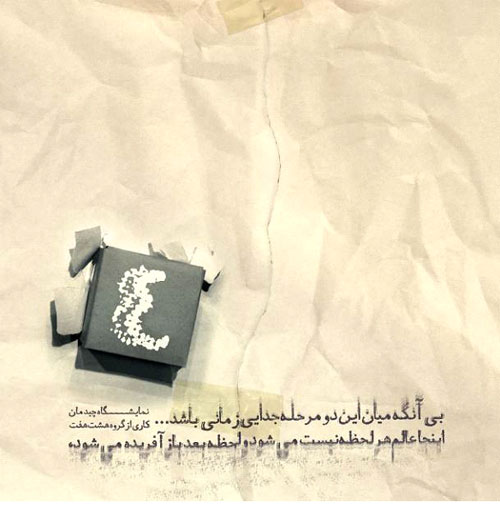 بی آنکه میان این دو مرحله جدایی زمانی باشد...
اینجا عالم هر لحظه نیست می شود و لحظه بعد باز آفریده می شود،
نمایشگاه چیدمان
کاری از گروه هشت هفت